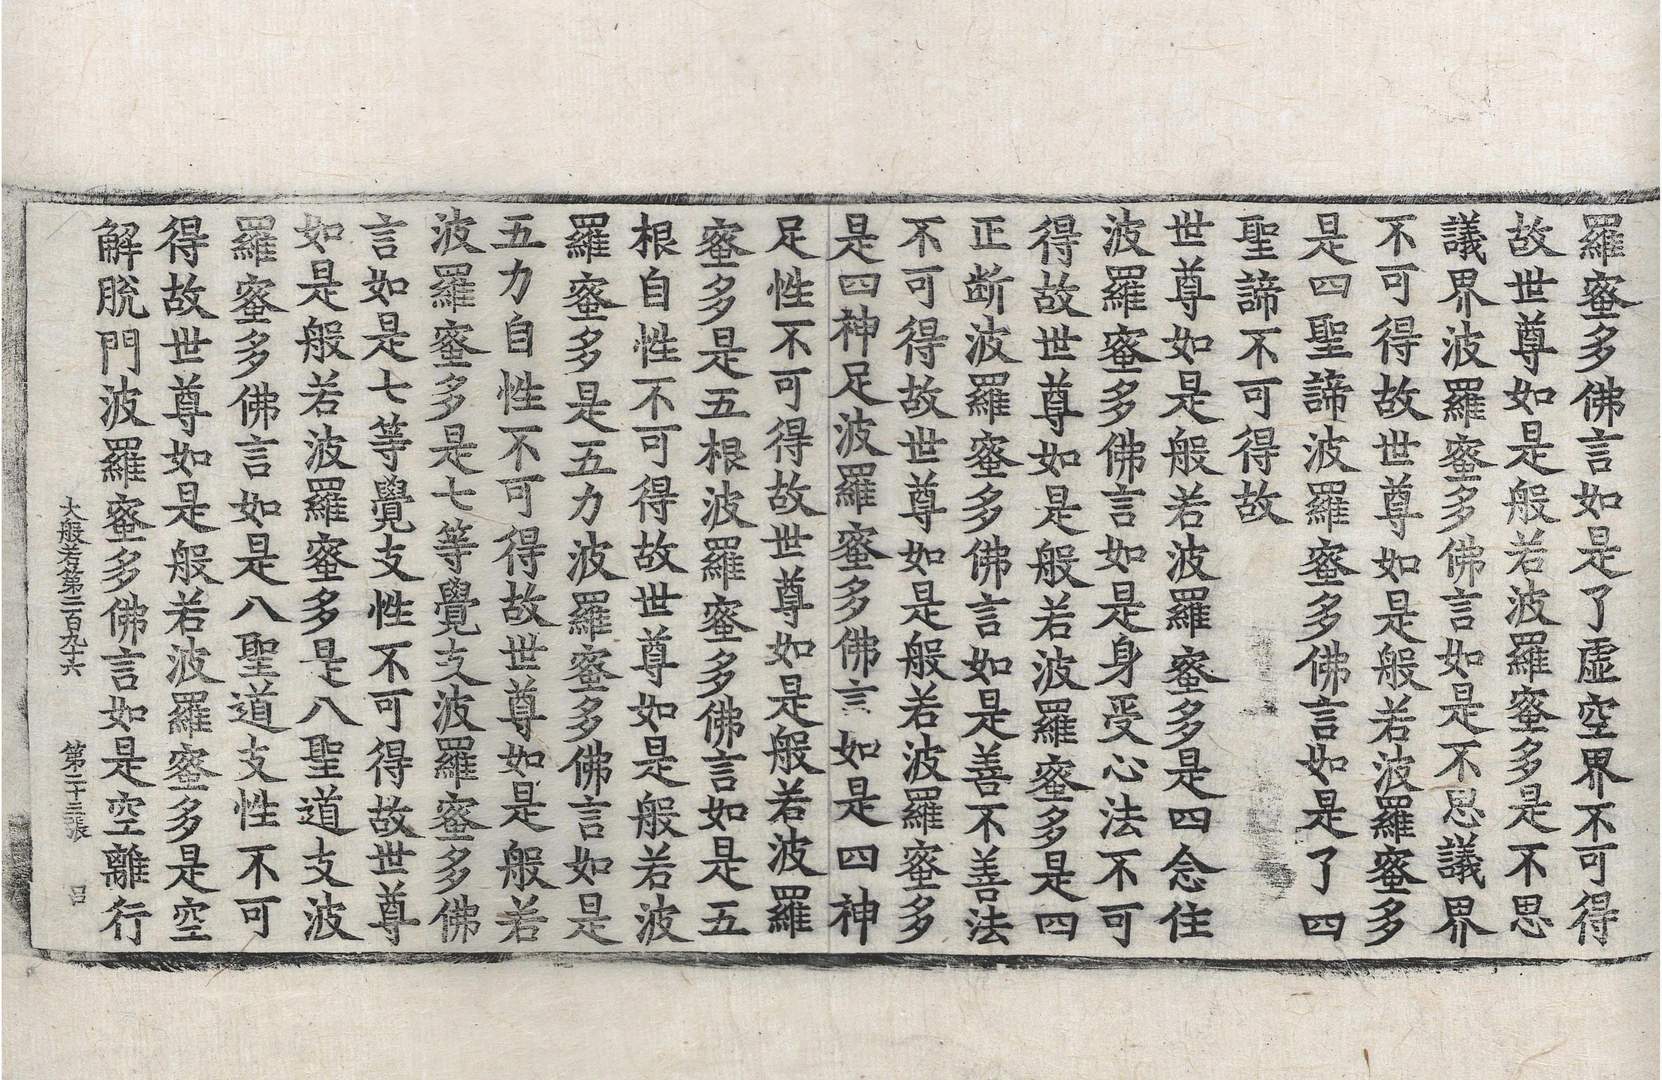 羅蜜多佛言如是了虛空界不可得
故世尊如是般若波羅蜜多是不思
議界波羅蜜多佛言如是不思議界
不可得故世尊如是般若波羅蜜多
是四聖諦波羅蜜多佛言如是了四
聖諦不可得故
世尊如是般若波羅蜜多是四念住
波羅蜜多佛言如是身受心法不可
得故世尊如是般若波羅蜜多是四
正断波羅蜜多佛言如是善不善法
不可得故世尊如是般若波羅蜜多
是四神足波羅蜜多佛言如是四神
足性不可得故世尊如是般若波羅
蜜多是五根波羅蜜多佛言如是五
根自性不可得故世尊如是般若波
羅蜜多是五力波羅蜜多佛言如是
五力自性不可得故世尊如是般若
波羅蜜多是七等覺支波羅蜜多佛
言如是七等覺支性不可得故世尊
如是般若波羅蜜多是八聖道支波
羅蜜多佛言如是八聖道支性不可
得故世尊如是般若波羅蜜多是空
解脫門波羅蜜多佛言如是空離行
大般若第二百九十六 第二十三張 呂